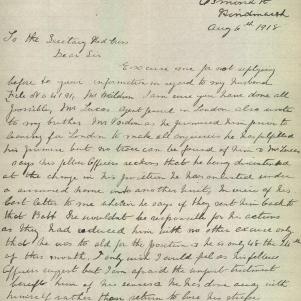 Osmond St
Hindmarsh
Aug 6th 1918
To the Secretary Red Cross
Dear Sir
Excuse me for not replying
before to your information in regard to my husband
File No 4191, Mr Weldon. I am sure you have done all
possible, Mr Lucas Agent General in London also wrote
to my brother Mr Verdon as he promised him prior to
leaving for London to make all enquiries he has fulfilled
his promise but no trace can be found of him & Mr Lucas
says his fellow Officers reckon that he being disheartened
at the change in his position he has enlisted under
a assumed name into another Unit, In view of his
last letter to me wherein he says if they sent him back to
that Batt he wouldn't be responsible for his actions
as they had reduced him with no other excuse only
that he was to old for the position & he is only 48 the 24th
of this month. I only wish I could feel as his fellow
Officers suggest but I am afraid the unjust treatment
bereft him of his senses & he has done away with
himself rather than return to lose his stripes